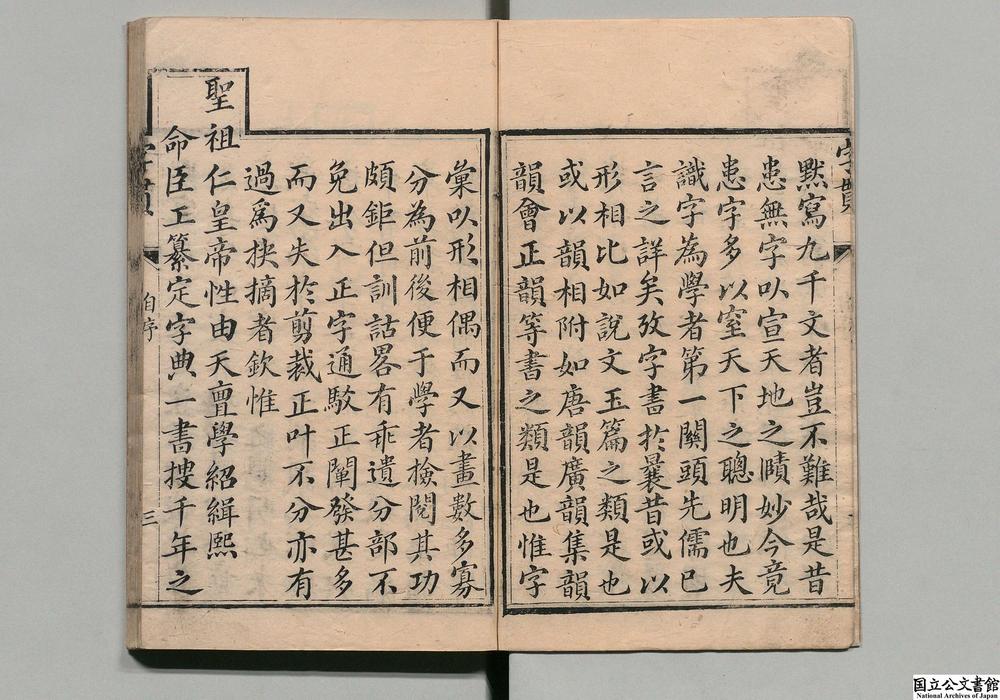 默寫九千文者豈不難哉是昔
患無字㕥宣天地之賾妙今竟
患字多以窒天下之聰明也夫
識字為學者第一關頭先儒已
言之詳矣攷字書扵曩昔或以
形相比如說文玉篇之類是也
或以韻相附如唐韻廣韻集韻
韻會正韻等書之類是也惟字
彙㕥形相偶而又以畫數多寡
分為前後便于學者撿閱其功
頗鉅但訓詁畧有乖遺分部不
免出入正字通駁正闡發甚多
而又失扵剪裁正叶不分亦有
過爲抉摘者欽惟
聖祖仁皇帝性由天亶學紹緝熙
命臣工纂定字典一書搜千年之
字貫
自序
三
国立公文書館
National Archives of Japan